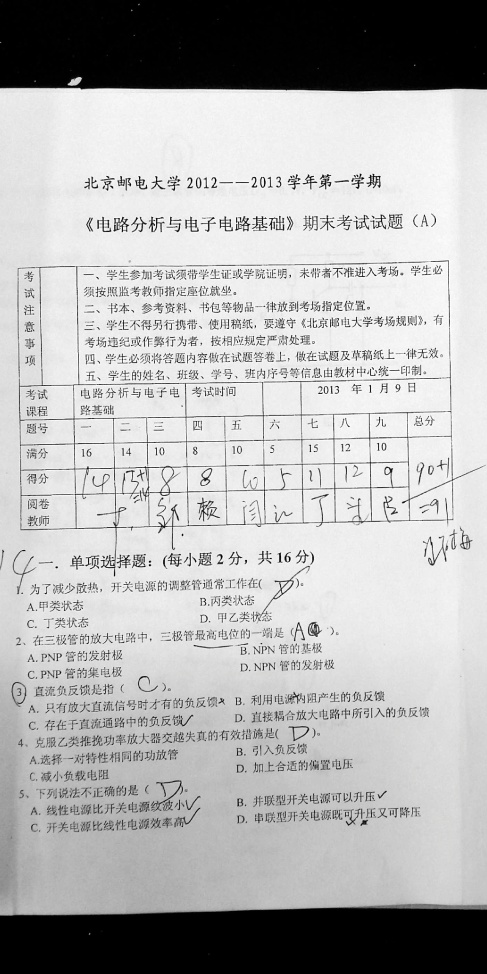 北京邮电大学2012——2013学年第一学期
《电路分析与电子电路基础》期末考试试题（A）
考试注意事项
一、学生参加考试须带学生证或学院证明，未带者不准进入考场。学生必
须按照监考教师指定座位就坐。
二、书本、参考资料、书包等物品一律放到考场指定位置。
三、学生不得另行携带、使用稿纸，要遵守《北京邮电大学考场规则》，有
考场违纪或作弊行为者，按相应规定严肃处理。
四、学生必须将答题内容做在试题答卷上，做在试题及草稿纸上一律无效。
五、学生的姓名、班级、学号、班内序号等信息由教材中心统一印制。
考试课程 电路分析与电子电路基础 考试时间 2013 年 1 月 9 日
题号 一 二 三 四 五 六 七 八 九 总分
满分 16 14 10 8 10 5 15 12 10
得分 14 13+1=14 8 8 10 5 11 12 9 90+1=91
阅卷教师
14
一．单项选择题：(每小题2分，共16分)
1. 为了减少散热，开关电源的调整管通常工作在( D )。
A.甲类状态 B.丙类状态
C. 丁类状态 D. 甲乙类状态
2、在三极管的放大电路中，三极管最高电位的一端是（A ）。
A. PNP 管的发射极 B. NPN 管的基极
C. PNP 管的集电极 D. NPN 管的发射极
3、直流负反馈是指（ C ）。
A. 只有放大直流信号时才有的负反馈 B. 利用电源内阻产生的负反馈
C. 存在于直流通路中的负反馈 D. 直接耦合放大电路中所引入的负反馈
4、克服乙类推挽功率放大器交越失真的有效措施是( D )。
A.选择一对特性相同的功放管 B. 引入负反馈
C. 减小负载电阻 D. 加上合适的偏置电压
5、下列说法不正确的是（ D ）。
A. 线性电源比开关电源纹波小 B. 并联型开关电源可以升压
C. 开关电源比线性电源效率高 D. 串联型开关电源既可升压又可降压